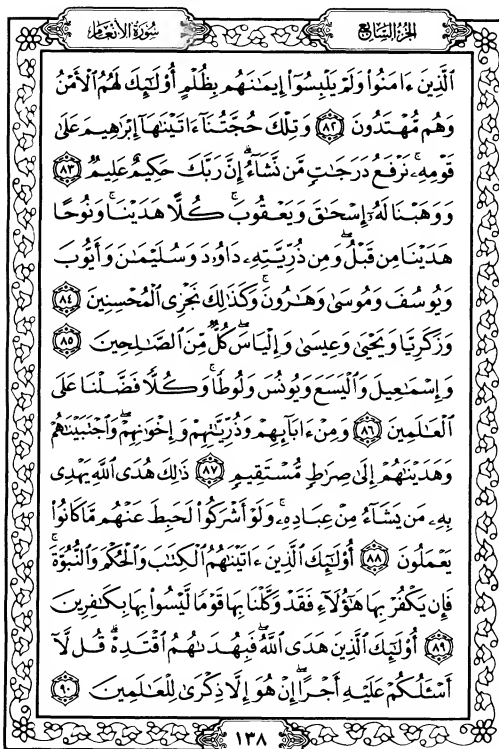 سُورَةُ الأَنْعَام
الجُزْءُ السَّابِعُ
ٱلَّذِينَ ءَامَنُوا۟ وَلَمْ يَلْبِسُوٓا۟ إِيمَٰنَهُم بِظُلْمٍ أُو۟لَٰٓئِكَ لَهُمُ ٱلْأَمْنُ
وَهُم مُّهْتَدُونَ ٨٢ وَتِلْكَ حُجَّتُنَآ ءَاتَيْنَٰهَآ إِبْرَٰهِيمَ عَلَىٰ
قَوْمِهِۦ ۚ نَرْفَعُ دَرَجَٰتٍ مَّن نَّشَآءُ ۗ إِنَّ رَبَّكَ حَكِيمٌ عَلِيمٌ ٨٣
وَوَهَبْنَا لَهُۥٓ إِسْحَٰقَ وَيَعْقُوبَ ۚ كُلًّا هَدَيْنَا ۚ وَنُوحًا
هَدَيْنَا مِن قَبْلُ ۖ وَمِن ذُرِّيَّتِهِۦ دَاوُۥدَ وَسُلَيْمَٰنَ وَأَيُّوبَ
وَيُوسُفَ وَمُوسَىٰ وَهَٰرُونَ ۚ وَكَذَٰلِكَ نَجْزِى ٱلْمُحْسِنِينَ ٨٤
وَزَكَرِيَّا وَيَحْيَىٰ وَعِيسَىٰ وَإِلْيَاسَ ۖ كُلٌّ مِّنَ ٱلصَّٰلِحِينَ ٨٥
وَإِسْمَٰعِيلَ وَٱلْيَسَعَ وَيُونُسَ وَلُوطًا ۚ وَكُلًّا فَضَّلْنَا عَلَى
ٱلْعَٰلَمِينَ ٨٦ وَمِنْ ءَابَآئِهِمْ وَذُرِّيَّٰتِهِمْ وَإِخْوَٰنِهِمْ ۖ وَٱجْتَبَيْنَٰهُمْ
وَهَدَيْنَٰهُمْ إِلَىٰ صِرَٰطٍ مُّسْتَقِيمٍ ٨٧ ذَٰلِكَ هُدَى ٱللَّهِ يَهْدِى
بِهِۦ مَن يَشَآءُ مِنْ عِبَادِهِۦ ۚ وَلَوْ أَشْرَكُوا۟ لَحَبِطَ عَنْهُم مَّا كَانُوا۟
يَعْمَلُونَ ٨٨ أُو۟لَٰٓئِكَ ٱلَّذِينَ ءَاتَيْنَٰهُمُ ٱلْكِتَٰبَ وَٱلْحُكْمَ وَٱلنُّبُوَّةَ ۚ
فَإِن يَكْفُرْ بِهَا هَٰٓؤُلَآءِ فَقَدْ وَكَّلْنَا بِهَا قَوْمًا لَّيْسُوا۟ بِهَا بِكَٰفِرِينَ
٨٩ أُو۟لَٰٓئِكَ ٱلَّذِينَ هَدَى ٱللَّهُ ۖ فَبِهُدَىٰهُمُ ٱقْتَدِهْ ۗ قُل لَّآ
أَسْـَٔلُكُمْ عَلَيْهِ أَجْرًا ۖ إِنْ هُوَ إِلَّا ذِكْرَىٰ لِلْعَٰلَمِينَ ٩٠
١٣٨